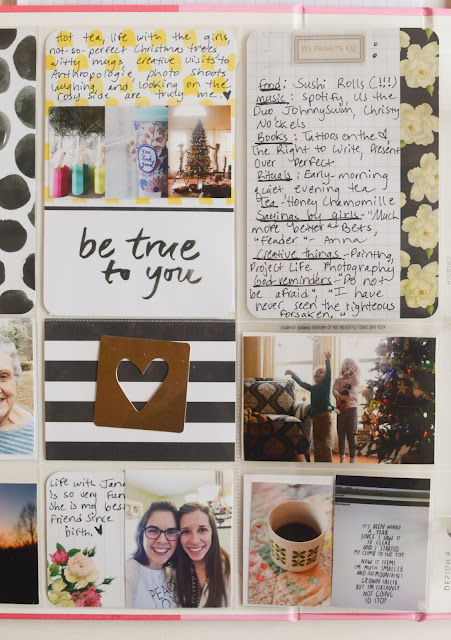 Hot tea, life with the girls,
not-so-perfect Christmas trees
witty mugs, creative visits to
Anthropologie, photo shoots
laughing, and looking on the
rosy side are truly me. ♥
be true
to you
FAVORITE
Food: Sushi Rolls (!!!)
music: Spotify, Us the
Duo, Johnnyswim, Christy
Nockels
Books: Tattoos on the ♥
The Right to Write, Present
Over Perfect
Rituals: Early-morning
quiet, evening tea
Tea-Honey Chamomille
Sayings by girls-"Much
more better" Bets,
"Feader"- Anna
Creative things-Painting,
Project Life, Photography
Good reminders-"Do not
be afraid", "I have
never seen the righteous
forsaken."
Life with Jana
is so very fun
She is my best
friend since
birth. ♥
IT'S BEEN NEARLY
A YEAR
SINCE I SAW IT
SO CLEAR
AND I STARTED
MY CLIMB TO THE TOP
NOW IT SEEMS
I'M MUCH SMALLER
AND THE MOUNTAIN'S
GROWN TALLER
BUT I'M CERTAINLY
NOT GOING
TO STOP